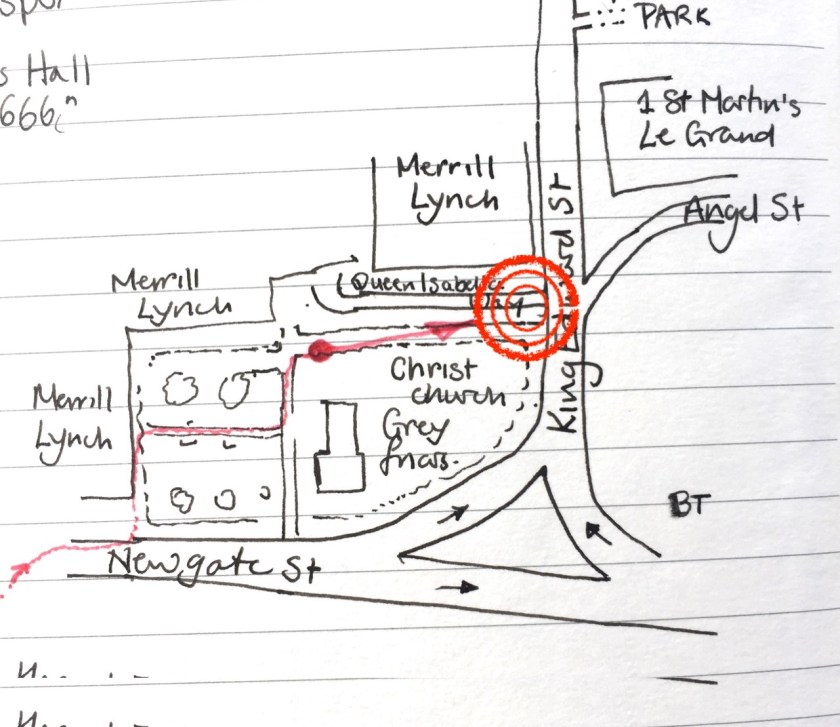 s Hall
666
PARK
1 St Martin's
Le Grand
Merrill
Lynch
Angel St
King Edward St
Queen Isabella
Merrill
Lynch
Christ
church
Grey
friars.
Merrill
Lynch
BT
Newgate St